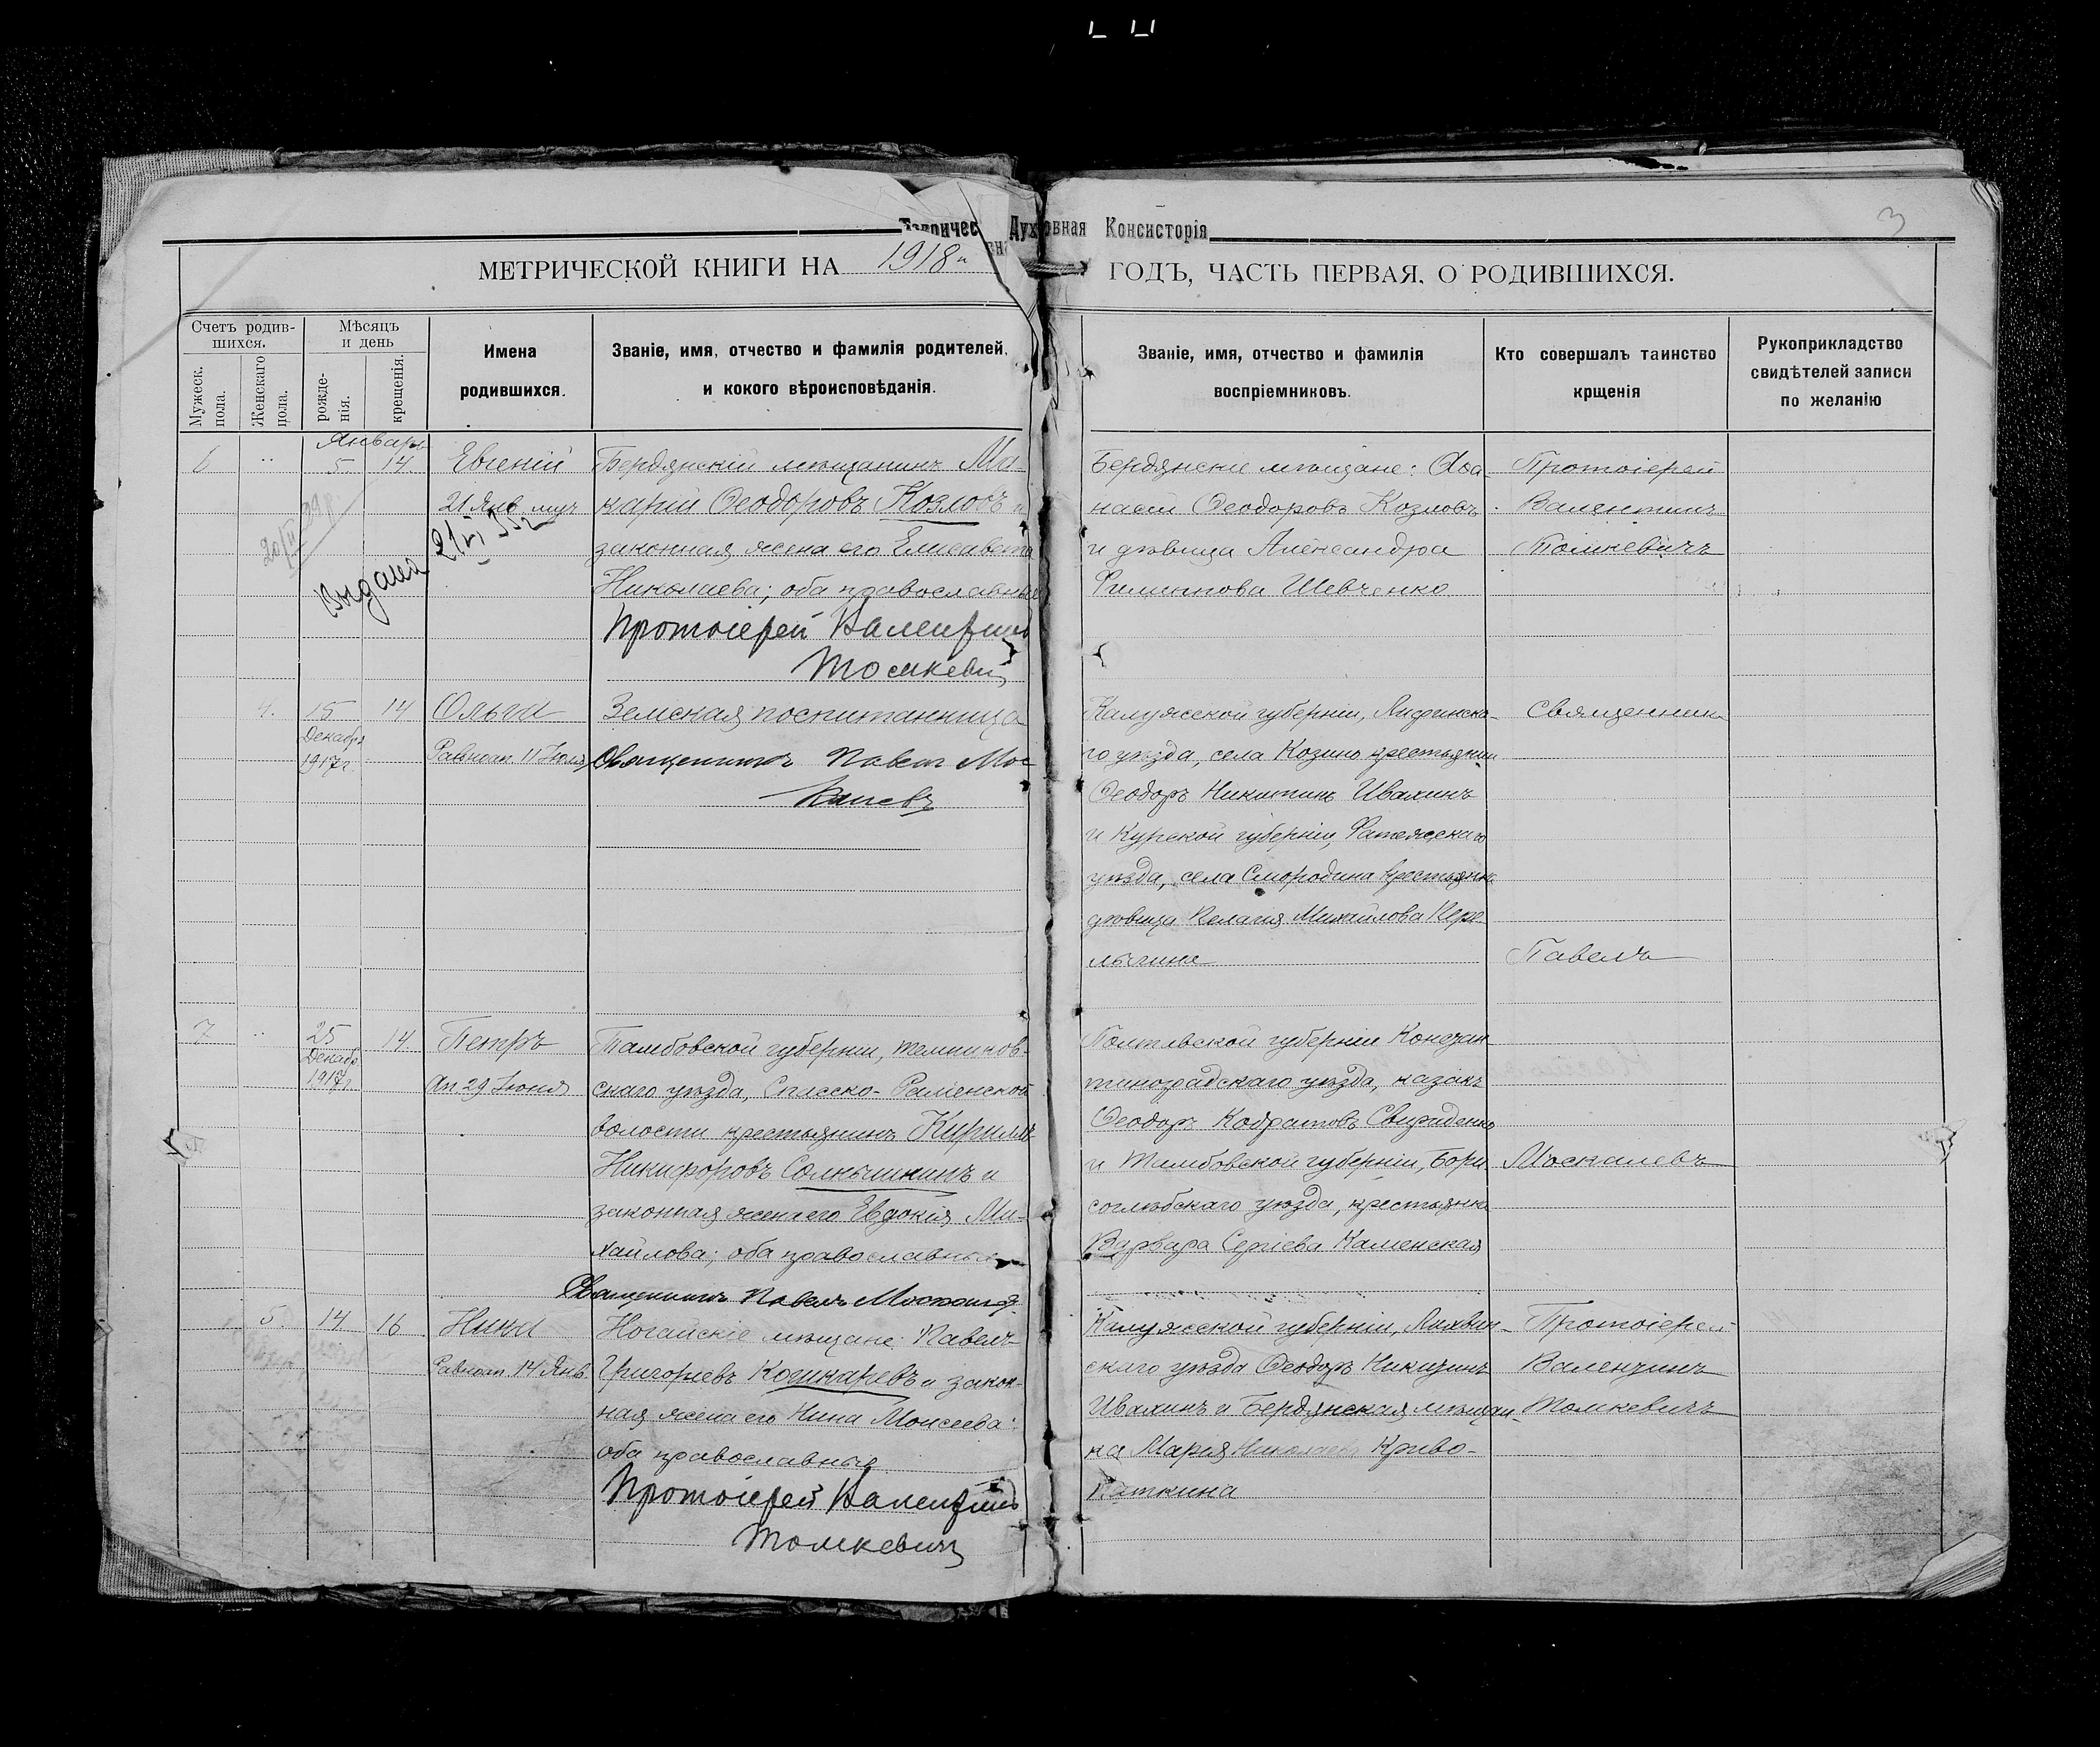 3
Духовная Консисторія
МЕТРИЧЕСКОЙ КНИГИ НА 1918й
ГОДЪ, ЧАСТЬ ПЕРВАЯ, О РОДИВШИХСЯ.
Счетъ родив-
шихся.
Мужеск.
пола.
Женскаго
пола.
Мѣсяцъ
и день
рожде-
нія.
крещенія.
Имена
родившихся.
Званіе, имя, отчество и фамилія родителей,
и кокого вѣроисповѣданія.
Званіе, имя, отчество и фамилія
воспріемниковъ.
Кто совершалъ таинство
крщенія
Рукоприкладство
свидѣтелей записи
по желанію
Январь
6 " 5 14. Евгеній
21 Янв. муч
Выдана
Бердянскій мѣщанинъ Ма-
карій Ѳеодоровъ Козловъ и
законная жена его Елисавета
Николаева; оба православные
Протоіерей Валентинъ
Томкевич
Бердянскіе мѣщане: Аѳа
насій Ѳеодоровъ Козловъ
и дѣвица Александра
Филиппова Шевченко
Протоіерей
Валентинъ
Томкевичъ
4. 15 14 Ольга
Декабр
1917 г.
Равноап. 11 Іюля
Земская воспитанница
Священникъ Павелъ Мос
калевъ
Калужской губерніи, Лихвинска-
го уѣзда, села Козино крестьянин
Ѳеодоръ Никитинъ Ивахинъ
и Курской губерніи, Фатежскаго
уѣзда, села Смородина крестьянка
дѣвица Пелагія Михайлова Пере
лыгина
Священникъ
Павелъ
Москалевъ
7 " 25 14. Петръ
Декабр
1917 г.
Ап. 29 Іюня
Тамбовской губерніи, Темников-
скаго уѣзда, Спасско-Раменской
волости крестьянинъ Кириллъ
Никифоровъ Солнышкинъ и
законная жена его Евдокія Ми-
хайлова; оба православные
Священникъ Павелъ Москалев
Полтавской губерніи Констан
тиноградскаго уѣзда, казакъ
Ѳеодоръ Кодратовъ Свириденко
и Тамбовской губерніи, Бори
соглѣбскаго уѣзда, крестьянка
Варвара Сергіева Каменская
5. 14 16 Нина
Равноап. 14 Янв.
Ногайскіе мѣщане: Павелъ
Григорьевъ Кошкаревъ и закон-
ная жена его Нина Моисеева:
оба православные
Протоіерей Валентинъ
Томкевичъ
Калужской губерніи, Лихвин-
скаго уѣзда Ѳеодоръ Никитинъ
Ивахинъ и Бердянская мѣщан-
ка Марія Николаева Криво-
паткина
Протоіерей
Валентинъ
Томкевичъ